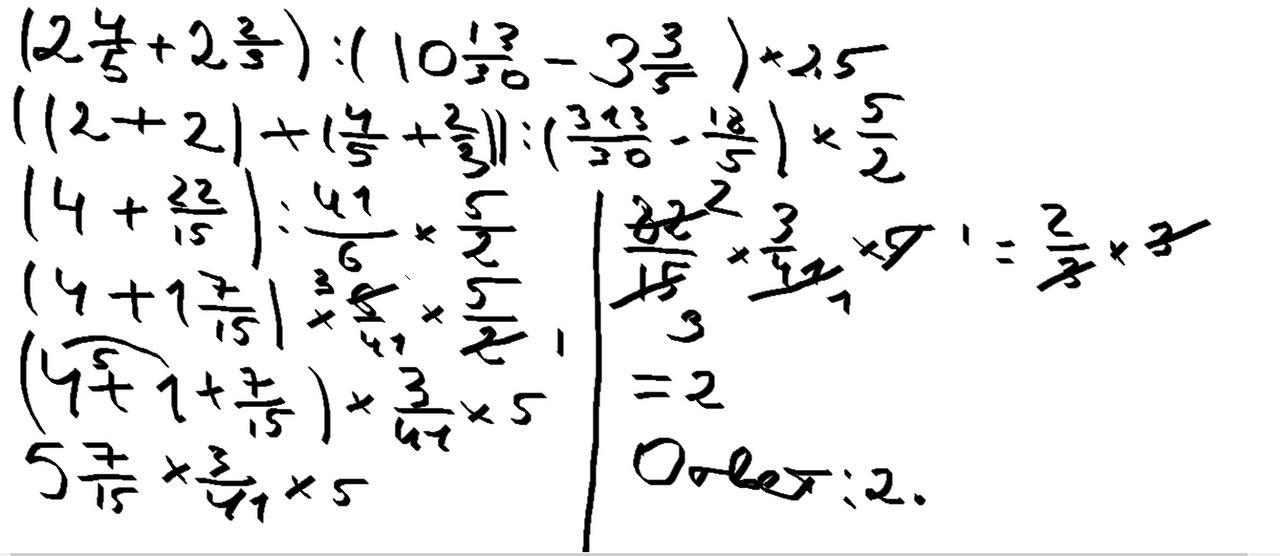 (2 4/5 + 2 2/3) : (10 13/30 - 3 3/5) × 2,5
((2 + 2) + (4/5 + 2/3)) : (313/30 - 18/5) × 5/2
(4 + 22/15) : 41/6 × 5/2
(4 + 1 7/15) × 6/41 × 5/2 3 1
(4 + 1 + 7/15) × 3/41 × 5 5
5 7/15 × 3/41 × 5
82/15 × 3/41 × 5 = 2/3 × 3 2 3 1 1
= 2
Ответ: 2.